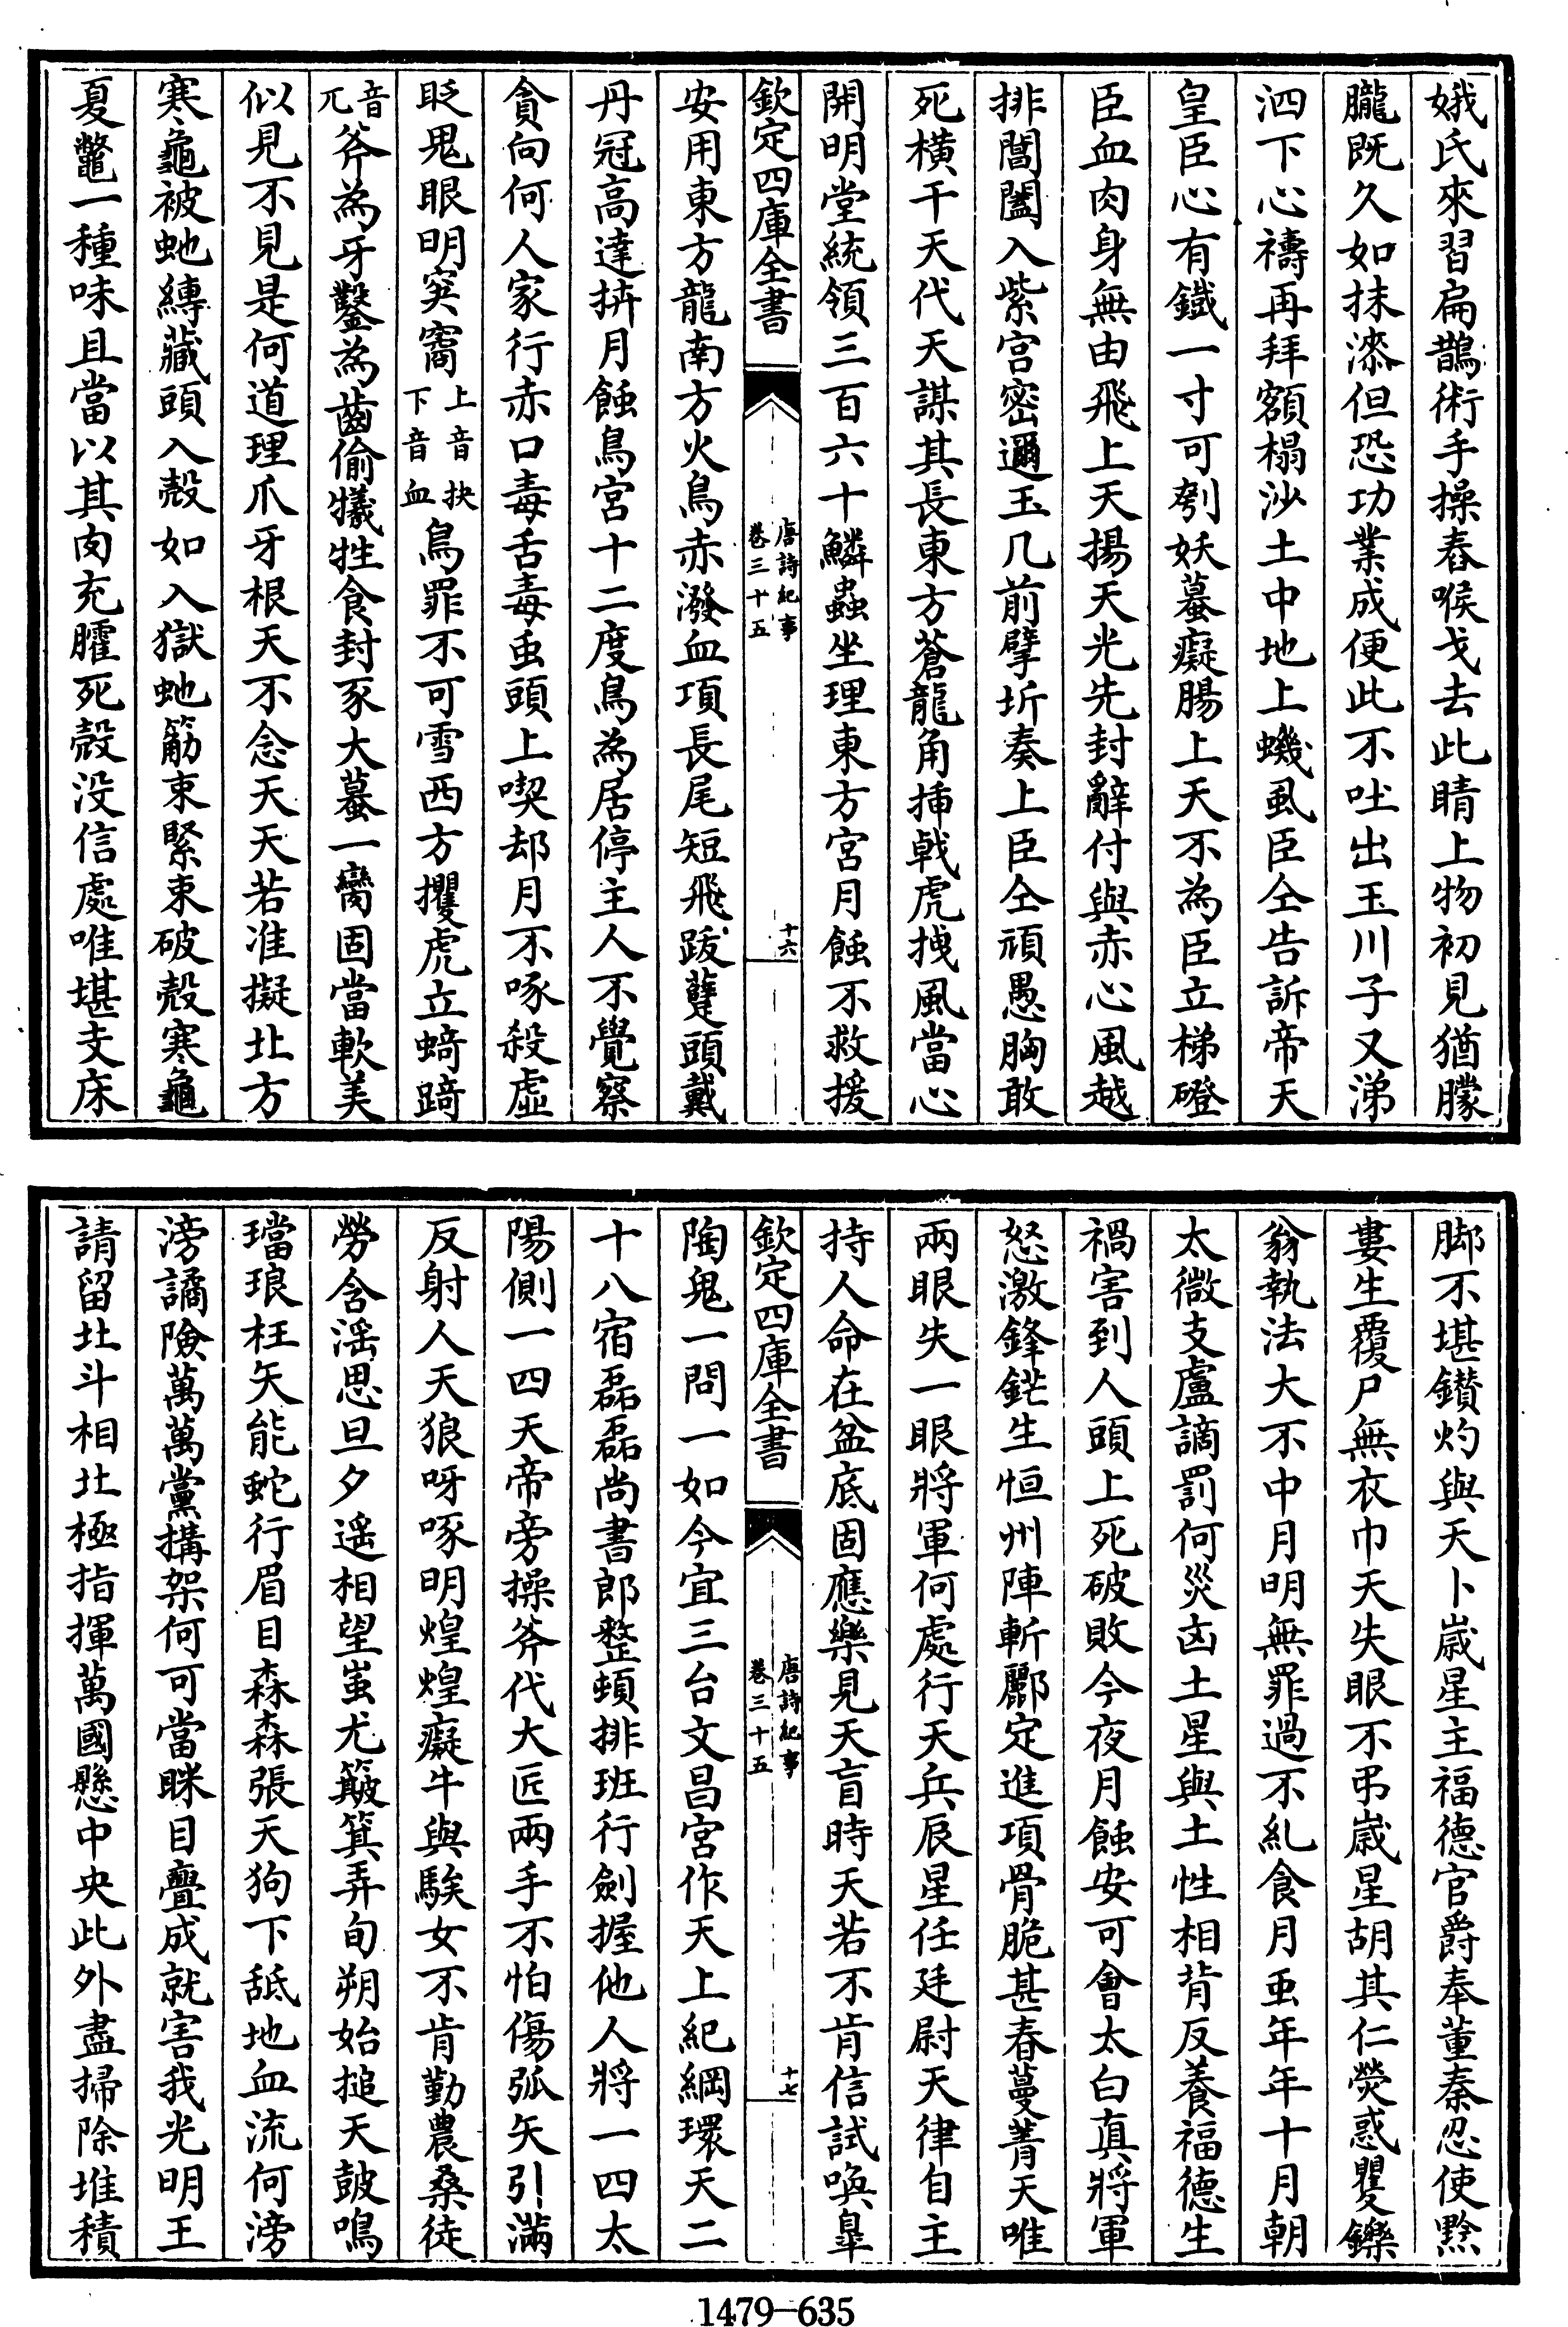 娥氏來習扁鵲術手操舂喉戈去此睛上物初見猶朦
朧既久如抹漆但恐功業成便此不吐出玉川子又涕
泗下心禱再拜額榻沙土中地上蟣虱臣仝告訴帝天
皇臣心有鐵一寸可刳妖蟇癡腸上天不為臣立梯磴
臣血肉身無由飛上天揚天光先封辭付與赤心風越
排閶闔入紫宮密邇玉几前擘坼奏上臣仝頑愚胸敢
死橫干天代天謀其長東方蒼龍角插戟虎拽風當心
開明堂統領三百六十鱗蟲坐理東方宮月蝕不救援
欽定四庫全書
唐詩紀事
卷三十五
十六
安用東方龍南方火鳥赤潑血項長尾短飛跋躠頭戴
丹冠高達拚月蝕鳥宮十二度鳥為居停主人不覺察
貪向何人家行赤口毒舌毒虫頭上喫却月不啄殺虛
眨鬼眼明穾窩上音抉下音血鳥罪不可雪西方攫虎立蜻踦
音兀斧為牙鑿為齒偷犧牲食封豕大蟇一臠固當軟美
似見不見是何道理爪牙根天不念天天若准擬北方
寒龜被虵縛藏頭入殼如入獄虵筋束緊束破殼寒龜
夏鼈一種味且當以其肉充臛死殼沒信處唯堪支床
脚不堪鑽灼與天卜嵗星主福德官爵奉董秦忍使黔
婁生覆尸無衣巾天失眼不弔嵗星胡其仁熒惑矍鑠
翁執法大不中月明無罪過不糺食月虫年年十月朝
太微支盧謫罰何災凶土星與土性相背反養福德生
禍害到人頭上死破敗今夜月蝕安可會太白真將軍
怒激鋒鋩生恒州陣斬酈定進項骨脆甚春蔓菁天唯
兩眼失一眼將軍何處行天兵辰星任廷尉天律自主
持人命在盆底固應樂見天盲時天若不肯信試喚臯
欽定四庫全書
唐詩紀事
卷三十五
十七
陶鬼一問一如今宜三台文昌宮作天上紀綱環天二
十八宿磊磊尚書郎整頓排班行劍握他人將一四太
陽側一四天帝旁操斧代大匠兩手不怕傷弧矢引滿
反射人天狼呀啄明煌煌癡牛與騃女不肯勤農桑徒
勞含滛思旦夕遥相望蚩尤簸箕弄旬朔始搥天鼓鳴
璫琅枉矢能蛇行眉目森森張天狗下舐地血流何滂
滂譎險萬萬黨搆架何可當眯目釁成就害我光明王
請留北斗相北極指揮萬國懸中央此外盡掃除堆積
1479-635